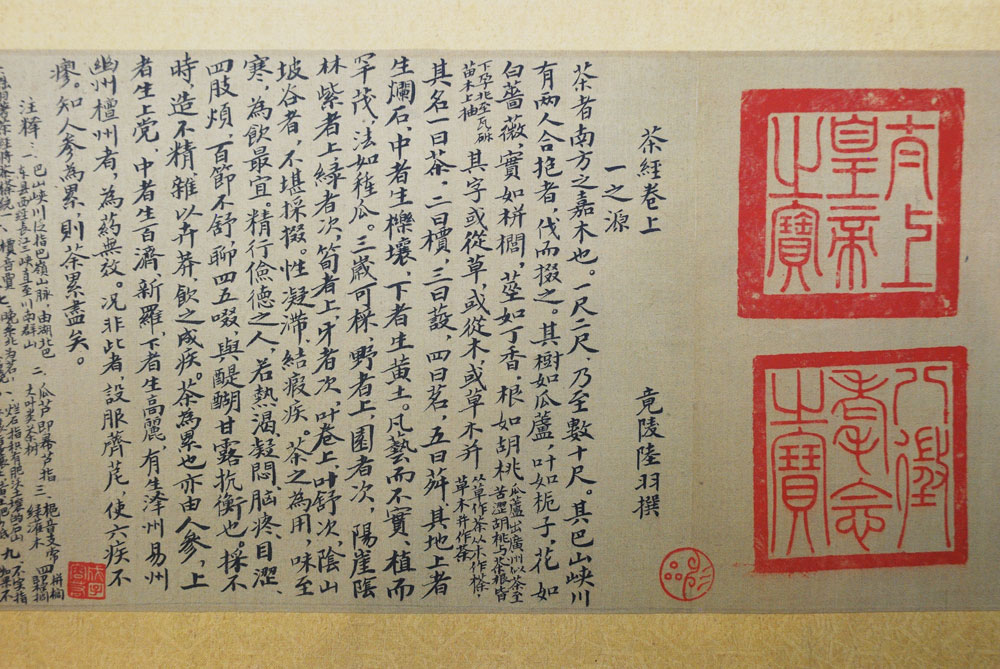 太上皇帝之寶
八徵耄念之寶
茶經卷上
竟陵陸羽撰
一之源
茶者南方之嘉木也。一尺二尺,乃至數十尺。其巴山峽川
有两人合抱者,伐而掇之。其樹如瓜蘆,叶如栀子,花如
白薔薇,實如栟櫚,莖如丁香,根如胡桃
瓜蘆出廣州以茶至
苦澀胡桃与茶根皆
下孕兆至瓦砾
苗木上抽
其字或從草,或從木,或草木并
从草作茶从木作㮈,
草木并作荼
其名一曰茶,二曰檟,三曰蔎,四曰茗,五曰荈。其地上者
生爛石,中者生櫟壤,下者生黄土。凡藝而不實,植而
罕茂,法如種瓜。三歲可採,野者上,園者次,陽崖陰
林紫者上,綠者次,筍者上,牙者次,叶卷上,叶舒次,陰山
坡谷者,不堪採掇。性凝滞,結瘕疾。茶之為用,味至
寒,為飲最宜。精行儉德之人,若熱渴凝悶脑疼、目澀、
四肢煩,百節不舒,聊四五啜,與醍醐甘露抗衡也。採不
時,造不精,雜以卉莽,飲之成疾。茶為累也亦由人參,上
者生上党,中者生百濟,新羅,下者生高麗,有生泽州易州
幽州檀州者,為药無效。况非此者設服薺苨,使六疾不
瘳。知人參為累,則茶累盡矣。
注釋:一、巴山峽川泛指巴嶺山脉,由湖北巴
东县西經長江三峡直至川南群山
二、瓜芦即皋芦指
大叶类茶树
三、栀音支常
綠灌木
四、栟櫚